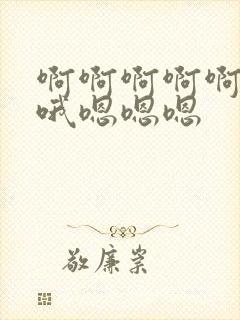 啊啊啊啊啊
哦嗯嗯嗯
敬廉崇